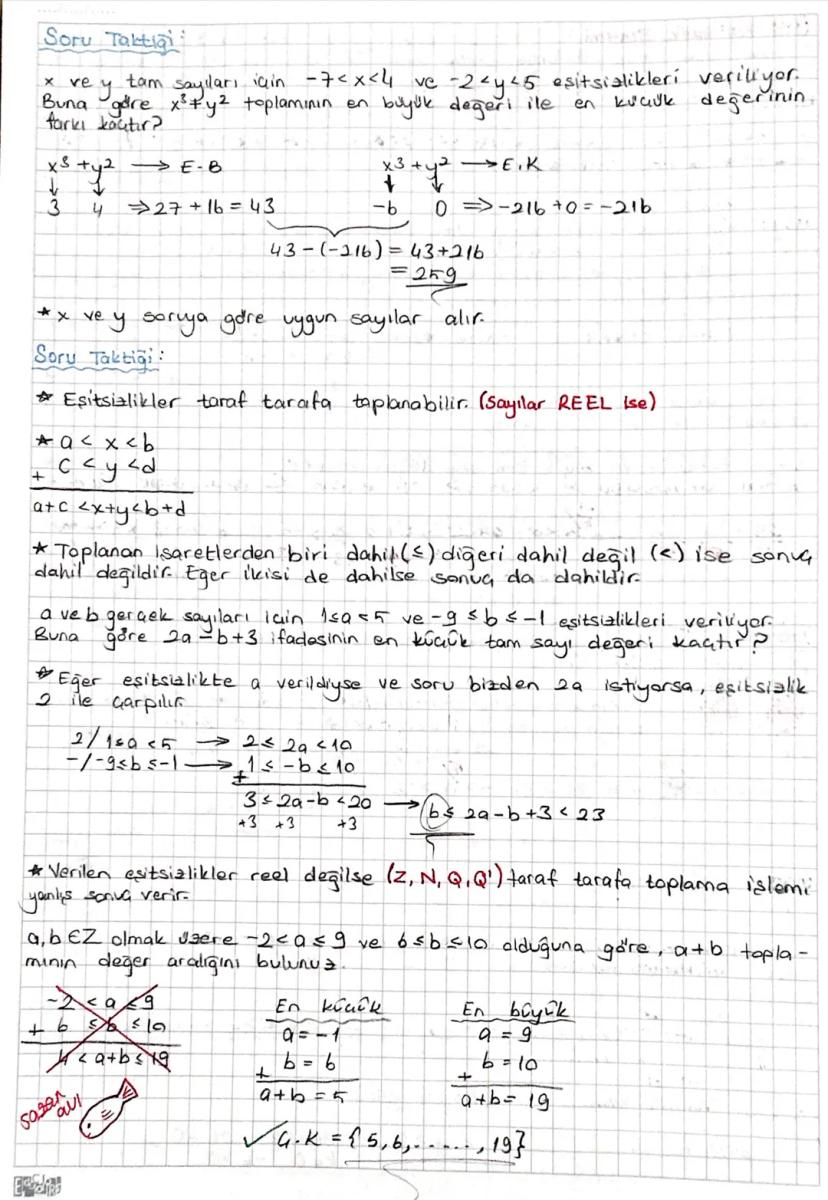 Soru Taktiği:
x ve y tam sayıları için -7<x<4 ve -2<y<5 eşitsizlikleri veriliyor.
Buna göre x³+y² toplamının en büyük değeri ile en küçük değerinin
farkı kaçtır?
x³+y² → E.B x³+y² → E.K
↓ ↓ ↓ ↓
3 4 ⇒27+16=43 -6 0 ⇒-216+0=-216
43-(-216)=43+216
=259
*x ve y soruya göre uygun sayılar alır.
Soru Taktiği:
* Eşitsizlikler taraf tarafa toplanabilir. (Sayılar REEL ise)
* a<x<b
+ c<y<d
a+c<x+y<b+d
* Toplanan işaretlerden biri dahil(≤) diğeri dahil değil (<) ise sonuç
dahil değildir. Eğer ikisi de dahilse sonuç da dahildir.
a ve b gerçek sayıları için 1≤a<5 ve -9≤b≤-1 eşitsizlikleri veriliyor.
Buna göre 2a-b+3 ifadesinin en küçük tam sayı değeri kaçtır?
* Eğer eşitsizlikte a verildiyse ve soru bizden 2a istiyorsa, eşitsizlik
2 ile çarpılır.
2/ 1≤a<5 → 2≤2a<10
-/-9≤b≤-1 → + 1≤-b≤10
3≤2a-b<20 → 6≤2a-b+3<23
+3 +3 +3
* Verilen eşitsizlikler reel değilse (Z, N, Q, Q') taraf tarafa toplama işlemi
yanlış sonuç verir.
a,b∈Z olmak üzere -2<a≤9 ve 6≤b≤10 olduğuna göre, a+b topla-
mının değer aralığını bulunuz.
-2<a≤9 En küçük En büyük
+ 6≤b≤10 a=-1 a=9
4<a+b≤19 + b=6 + b=10
sazan avı a+b=5 a+b=19
✓ Ç.K={5,6,......,19}